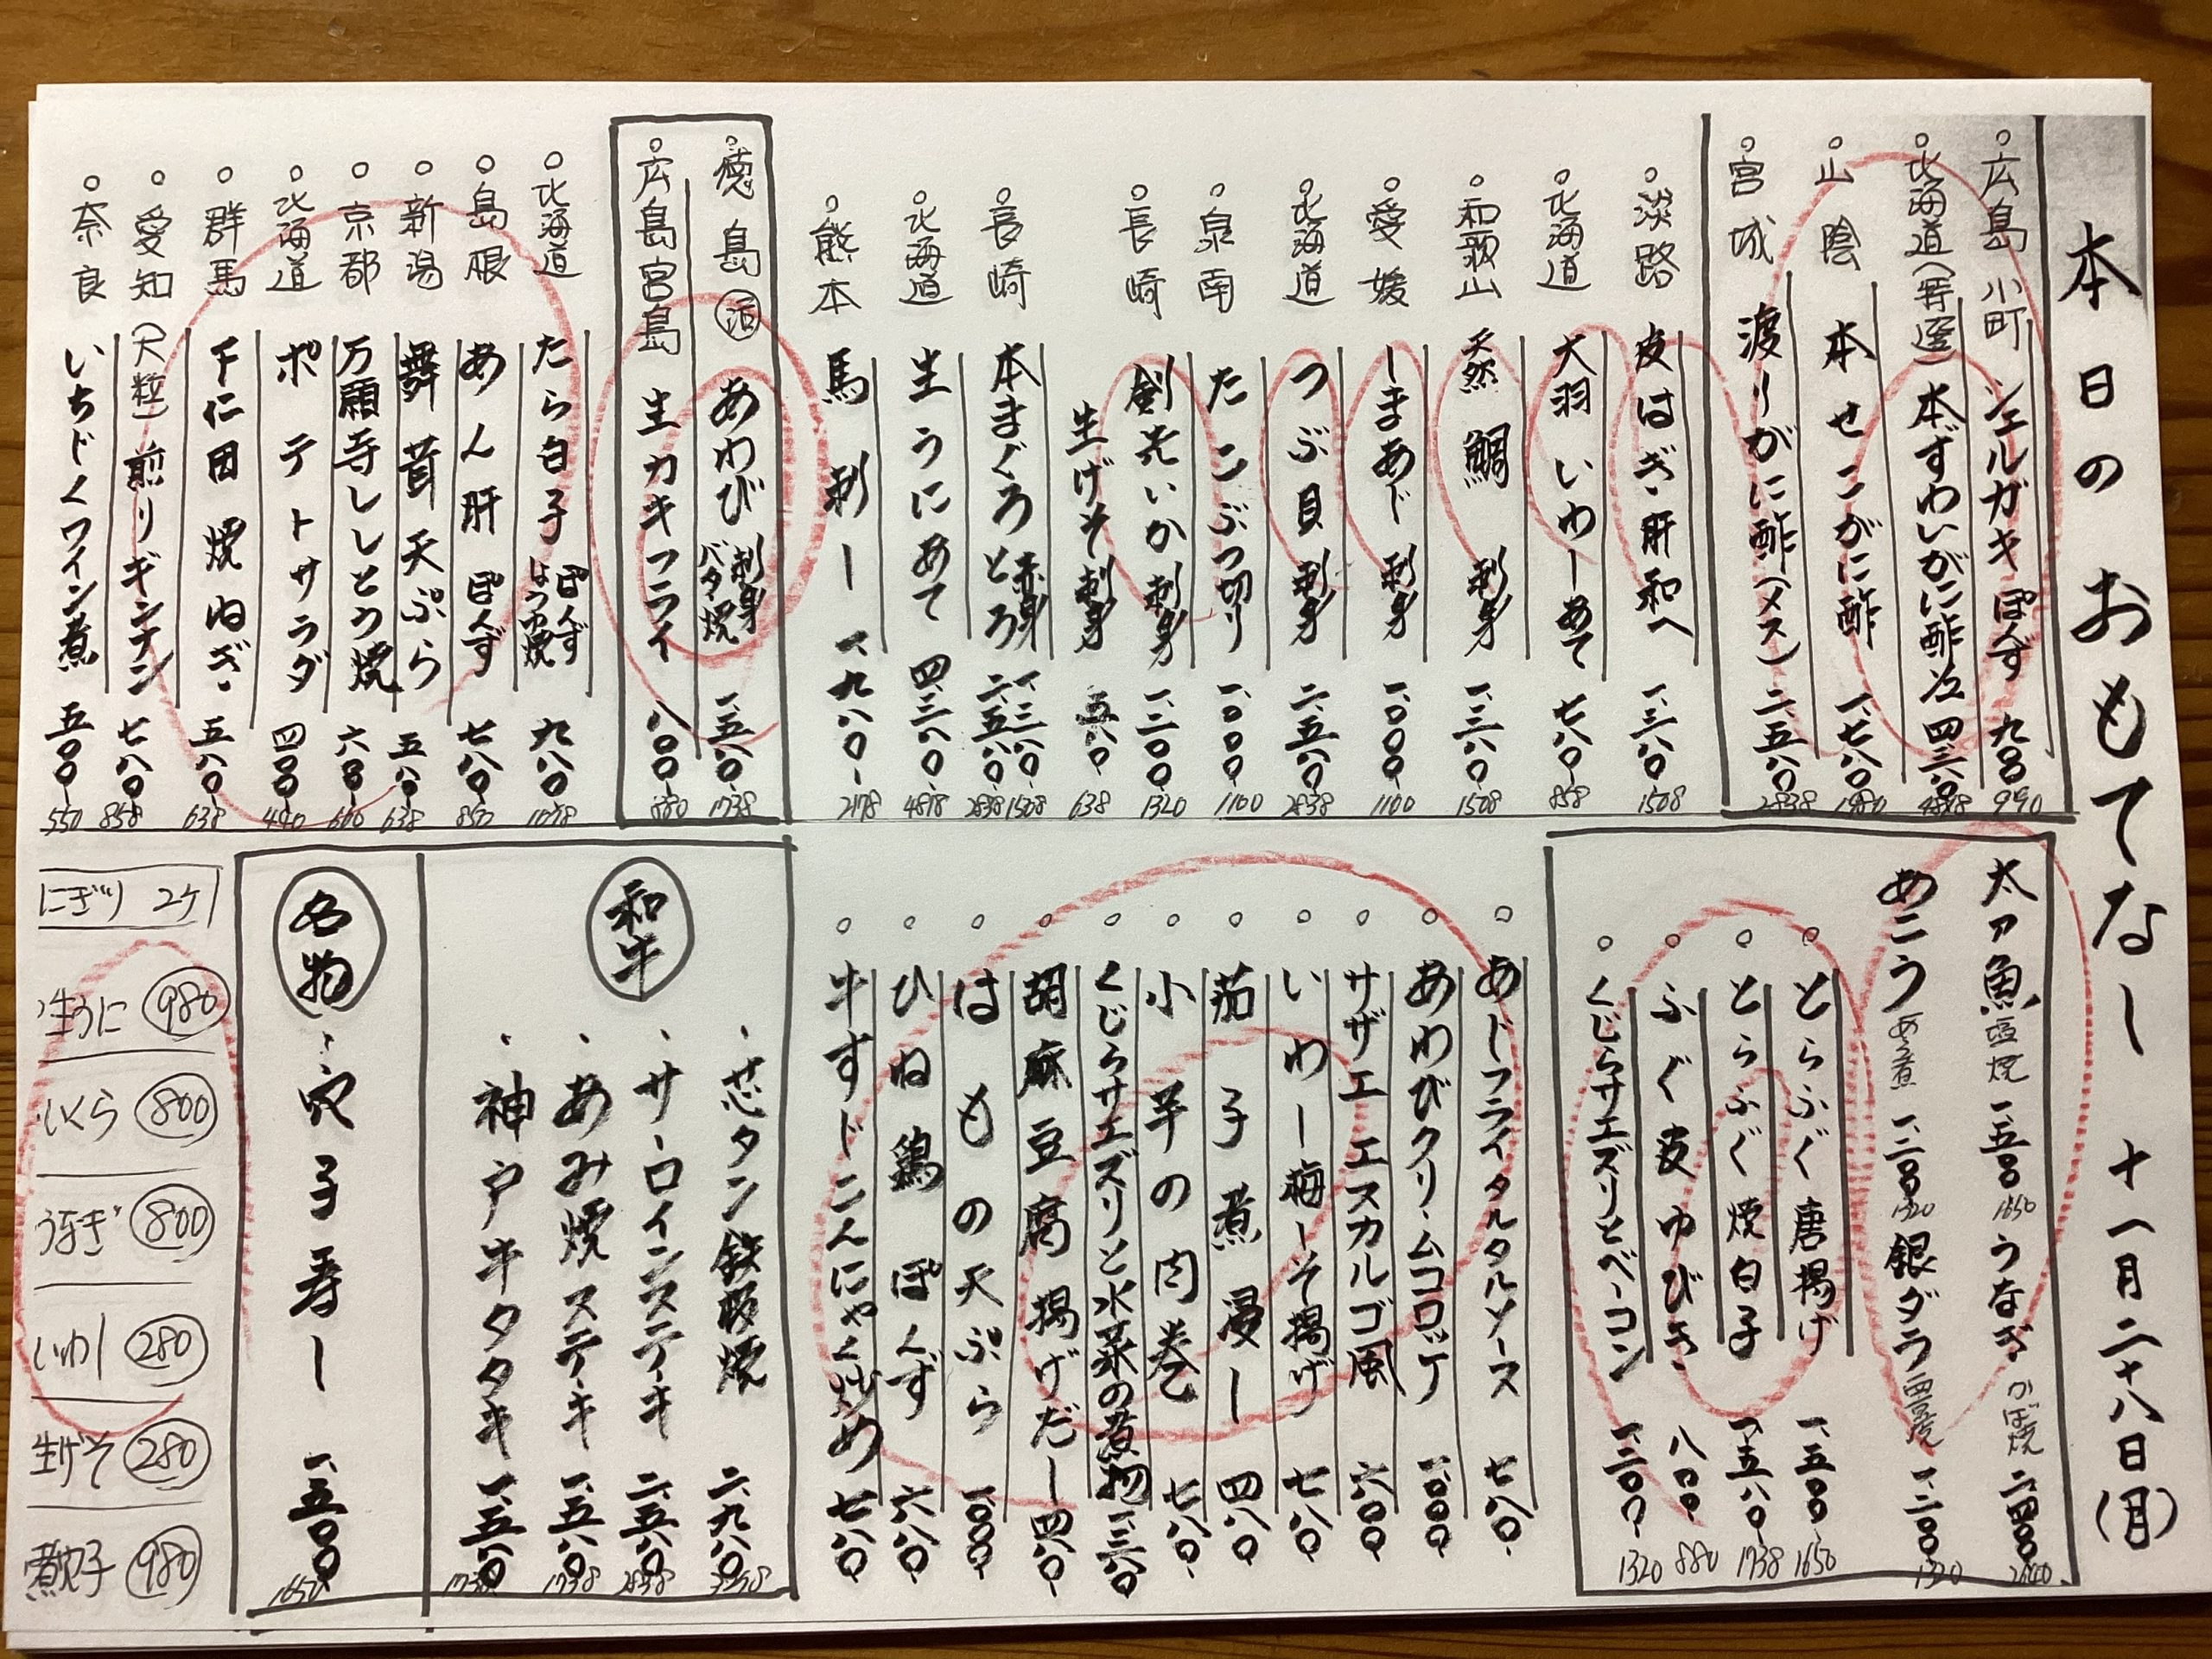 本日のおもてなし 十一月二十八日(月)
広島 小町 シェルガキ ぽんず 九〇〇 990
北海道(特選) 本ずわいがに酢 1/2 四三八〇 4818
山陰 本せこがに酢 一、七八〇 1980
宮城 渡りがに酢(メス) 二、五八〇 2838
淡路 皮はぎ・肝和へ 一、三八〇 1508
北海道 大羽いわしあて 七八〇 858
和歌山 天然 鯛 刺身 一、三八〇 1508
愛媛 しまあじ 刺身 一、〇〇〇 1100
北海道 つぶ貝 刺身 二、五八〇 2838
泉南 たこぶつ切り 一、〇〇〇 1100
長崎 剣先いか 刺身 一、二〇〇 1320
生げそ 刺身 五八〇 638
長崎 本まぐろ 赤身 一、三八〇 1508
とろ 二、五八〇 2838
北海道 生うにあて 四、三八〇 4818
熊本 馬刺し 一、九八〇 2178
徳島 活 あわび 刺身 バタ焼 一、五八〇 1738
広島宮島 生カキフライ 八〇〇 880
北海道 たら白子 ぽんず 九八〇 1078
島根 あん肝 ぽんず 七八〇
新潟 舞茸天ぷら 五八〇 638
京都 万願寺ししとう焼 六〇〇 660
北海道 ポテトサラダ 四〇〇 440
群馬 下仁田 焼ねぎ 五八〇 638
愛知(大粒) 煎りギンナン 七八〇 858
奈良 いちじくワイン煮 五〇〇 550
太刀魚 塩焼 一、五〇〇 1650 うなぎ かば焼 二、四〇〇 2640
あこう あら煮 一、二〇〇 1320 銀ダラ 西京焼 一、二〇〇 1320
とらふぐ唐揚げ 一、五〇〇 1650
とらふぐ焼白子 一、五八〇 1738
ふぐ皮ゆびき 八〇〇 880
くじらサエズリとベーコン 一、二〇〇 1320
あじフライタルタルソース 七八〇
あわびクリームコロッケ 一、〇〇〇
サザエ エスカルゴ風 六〇〇
いわし梅しそ揚げ 七八〇
茄子煮浸し 四八〇
小芋の肉巻 七八〇
くじらサエズリと水菜の煮物 一、三八〇
胡麻豆腐 揚げだし 四八〇
はもの天ぷら 一、〇〇〇
ひね鶏ぽんず 六八〇
牛すじこんにゃく炒め 七八〇
和牛
・芯タン鉄板焼 二、九八〇
・サーロインステーキ 二、五八〇 2838
・あみ焼ステーキ 一、五八〇 1738
・神戸牛タタキ 一、五八〇
名物
・穴子寿し 一、五〇〇 1650
にぎり 2ケ
生うに 980
いくら 800
うなぎ 800
いわし 280
生げそ 280
煮穴子 980